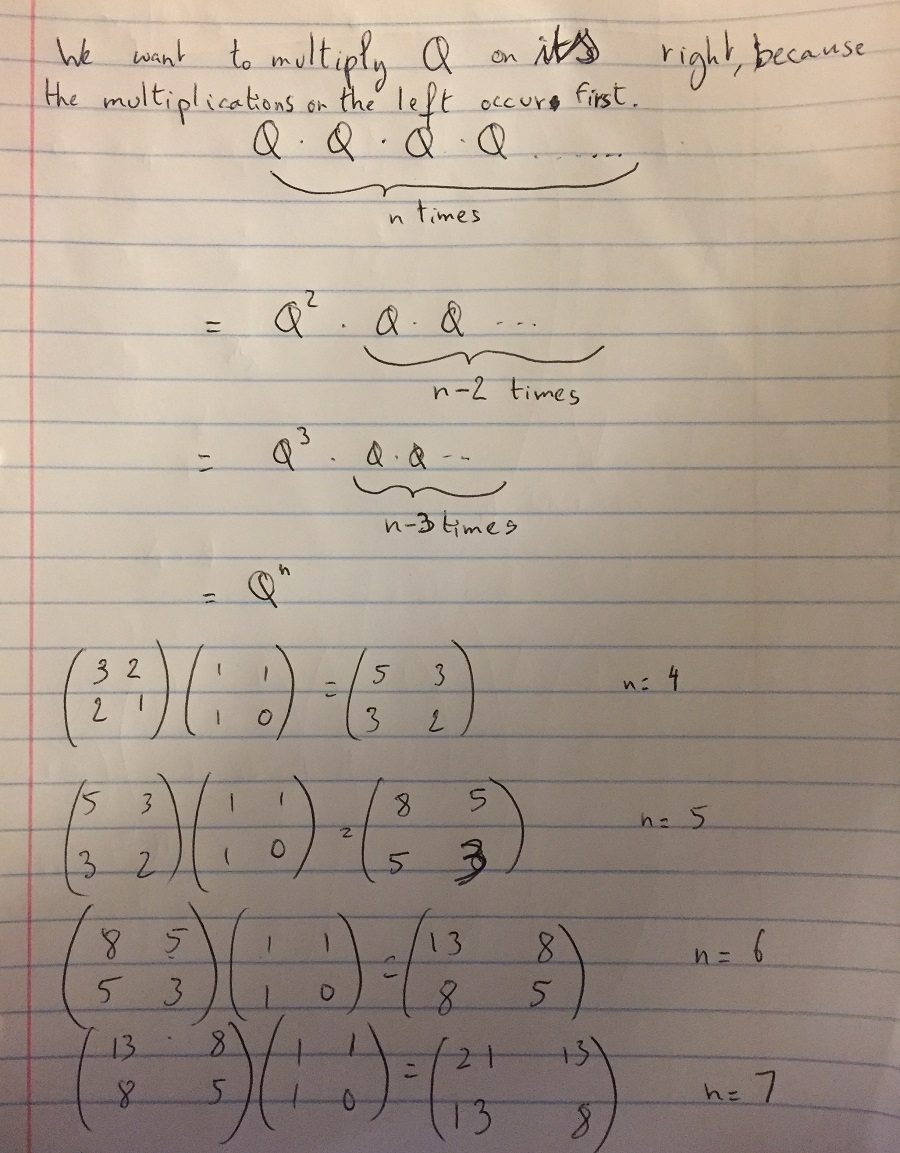 We want to multiply Q on its right, because
the multiplications on the left occurs first.
Q · Q · Q · Q .......
n times
= Q² · Q · Q ...
n-2 times
= Q³ · Q · Q ...
n-3 times
= Qⁿ
(3 2
2 1) (1 1
1 0) = (5 3
3 2) n = 4
(5 3
3 2) (1 1
1 0) = (8 5
5 3) n = 5
(8 5
5 3) (1 1
1 0) = (13 8
8 5) n = 6
(13 8
8 5) (1 1
1 0) = (21 13
13 8) n = 7